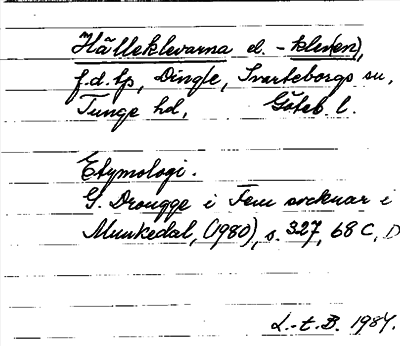 Hälleklevarna el. -kleven),
f.d. lp, Dingle, Svarteborgs sn,
Tunge hd, Göteb. l.
Etymologi.
G. Drougge i Fem socknar i
Munkedal, (1980), s. 327, 68 C, D
L.-t. B. 1984.